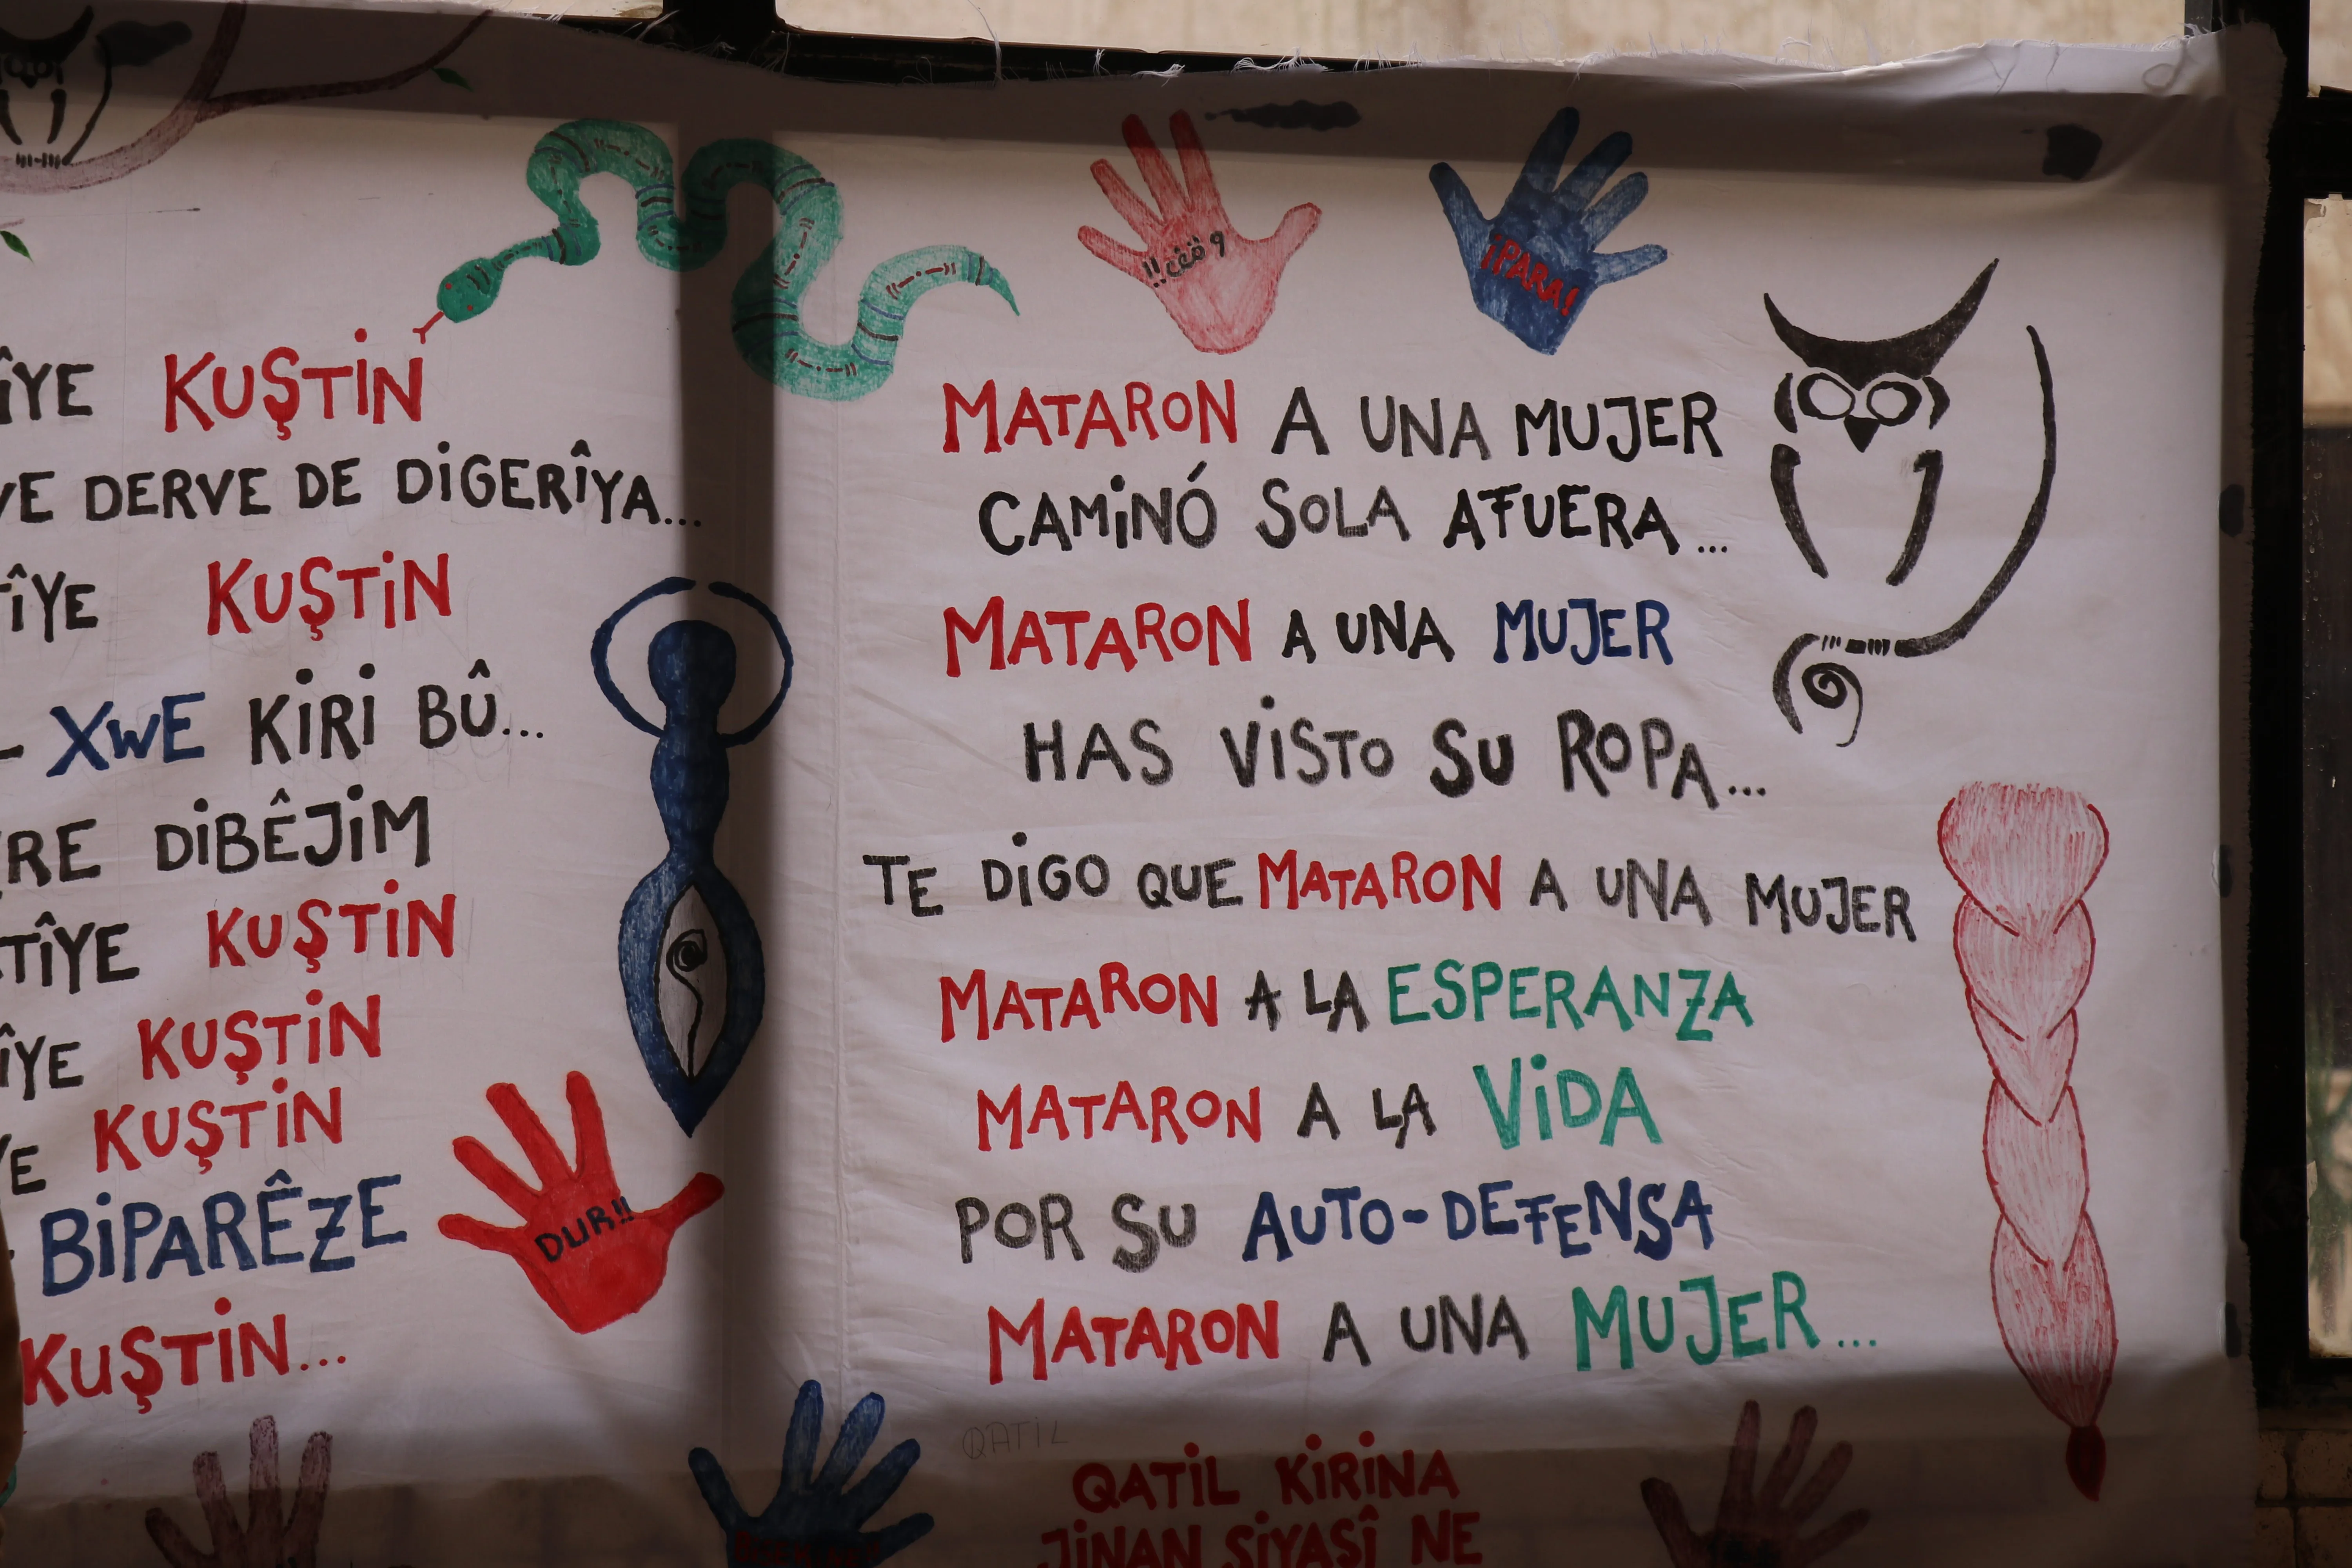 KUŞTİN
DERVE DE DİGERÎYA...
KUŞTİN
XWE KİRİ BÛ...
DİBÊJİM
KUŞTİN
KUŞTİN
KUŞTİN
BİPARÊZE
KUŞTİN...
DUR!!
¡PARA!
MATARON A UNA MUJER
CAMINÓ SOLA AFUERA...
MATARON A UNA MUJER
HAS VİSTO SU ROPA...
TE DİGO QUE MATARON A UNA MUJER
MATARON A LA ESPERANZA
MATARON A LA VİDA
POR SU AUTO-DEFENSA
MATARON A UNA MUJER...
QATİL
QATİL KİRİNA
JİNAN SİYASÎ NE